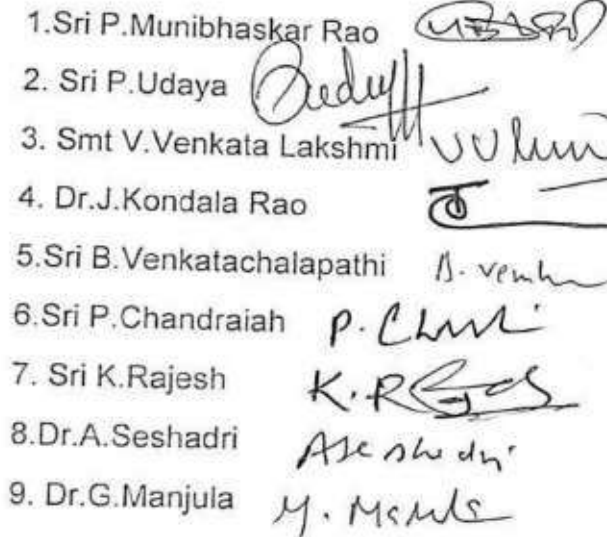 1.Sri P.Munibhaskar Rao
2. Sri P.Udaya
3. Smt V.Venkata Lakshmi
4. Dr.J.Kondala Rao
5.Sri B.Venkatachalapathi B. Venka
6.Sri P.Chandraiah P.
7. Sri K.Rajesh K.R
8.Dr.A.Seshadri Aseshadri
9. Dr.G.Manjula